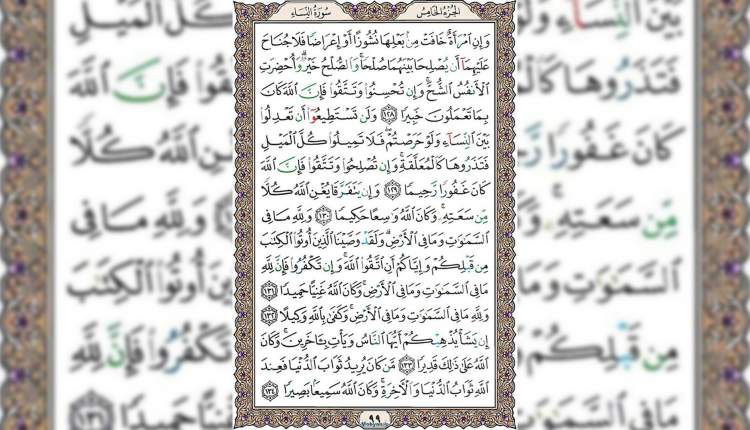 الجزء الخامس
سورة النساء
وَإِنِ ٱمۡرَأَةٌ خَافَتۡ مِنۢ بَعۡلِهَا نُشُوزًا أَوۡ إِعۡرَاضٗا فَلَا جُنَاحَ
عَلَيۡهِمَآ أَن يُصۡلِحَا بَيۡنَهُمَا صُلۡحٗاۚ وَٱلصُّلۡحُ خَيۡرٞۗ وَأُحۡضِرَتِ
ٱلۡأَنفُسُ ٱلشُّحَّۚ وَإِن تُحۡسِنُواْ وَتَتَّقُواْ فَإِنَّ ٱللَّهَ كَانَ
بِمَا تَعۡمَلُونَ خَبِيرٗا ١٢٨ وَلَن تَسۡتَطِيعُوٓاْ أَن تَعۡدِلُواْ
بَيۡنَ ٱلنِّسَآءِ وَلَوۡ حَرَصۡتُمۡۖ فَلَا تَمِيلُواْ كُلَّ ٱلۡمَيۡلِ
فَتَذَرُوهَا كَٱلۡمُعَلَّقَةِۚ وَإِن تُصۡلِحُواْ وَتَتَّقُواْ فَإِنَّ ٱللَّهَ
كَانَ غَفُورٗا رَّحِيمٗا ١٢٩ وَإِن يَتَفَرَّقَا يُغۡنِ ٱللَّهُ كُلّٗا
مِّن سَعَتِهِۦۚ وَكَانَ ٱللَّهُ وَٰسِعًا حَكِيمٗا ١٣٠ وَلِلَّهِ مَا فِي
ٱلسَّمَٰوَٰتِ وَمَا فِي ٱلۡأَرۡضِۗ وَلَقَدۡ وَصَّيۡنَا ٱلَّذِينَ أُوتُواْ ٱلۡكِتَٰبَ
مِن قَبۡلِكُمۡ وَإِيَّاكُمۡ أَنِ ٱتَّقُواْ ٱللَّهَۚ وَإِن تَكۡفُرُواْ فَإِنَّ لِلَّهِ
مَا فِي ٱلسَّمَٰوَٰتِ وَمَا فِي ٱلۡأَرۡضِۚ وَكَانَ ٱللَّهُ غَنِيًّا حَمِيدٗا ١٣١
وَلِلَّهِ مَا فِي ٱلسَّمَٰوَٰتِ وَمَا فِي ٱلۡأَرۡضِۚ وَكَفَىٰ بِٱللَّهِ وَكِيلًا ١٣٢
إِن يَشَأۡ يُذۡهِبۡكُمۡ أَيُّهَا ٱلنَّاسُ وَيَأۡتِ بِـَٔاخَرِينَۚ وَكَانَ
ٱللَّهُ عَلَىٰ ذَٰلِكَ قَدِيرٗا ١٣٣ مَّن كَانَ يُرِيدُ ثَوَابَ ٱلدُّنۡيَا فَعِندَ
ٱللَّهِ ثَوَابُ ٱلدُّنۡيَا وَٱلۡأٓخِرَةِۚ وَكَانَ ٱللَّهُ سَمِيعَۢا بَصِيرٗا ١٣٤
٩٩